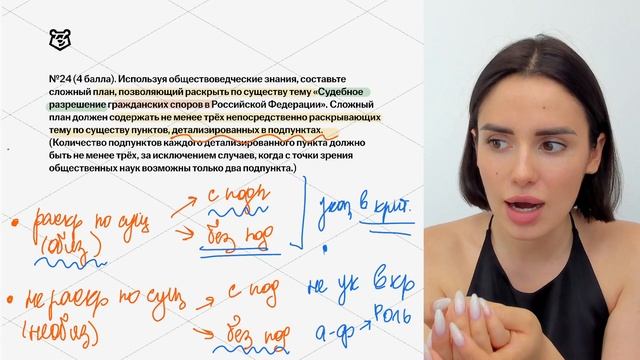 №24 (4 балла). Используя обществоведческие знания, составьте
сложный план, позволяющий раскрыть по существу тему «Судебное
разрешение гражданских споров в Российской Федерации». Сложный
план должен содержать не менее трёх непосредственно раскрывающих
тему по существу пунктов, детализированных в подпунктах.
(Количество подпунктов каждого детализированного пункта должно
быть не менее трёх, за исключением случаев, когда с точки зрения
общественных наук возможны только два подпункта.)
• раскр по сущ
(обяз)
с подп
без под
указ в крит.
• не раскр по сущ
(необяз)
с под
без под
не ук в кр
а-ф → Роль